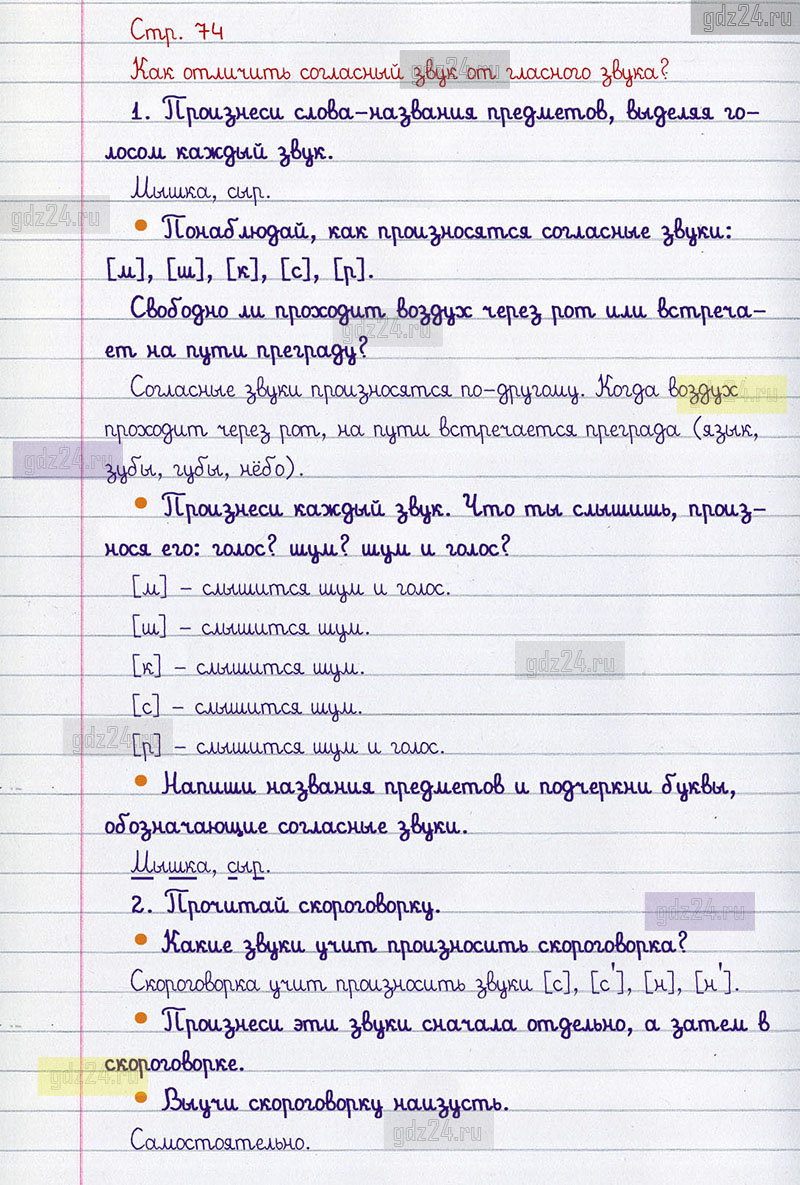 gdz24.ru
Стр. 74
Как отличить согласный звук от гласного звука?
gdz24.ru
1. Произнеси слова-названия предметов, выделяя го-
лосом каждый звук.
Мышка, сыр.
gdz24.ru
• Понаблюдай, как произносятся согласные звуки:
[м], [ш], [к], [с], [р].
Свободно ли проходит воздух через рот или встреча-
gdz24.ru
ет на пути преграду?
Согласные звуки произносятся по-другому. Когда воздух
gdz24.ru
проходит через рот, на пути встречается преграда (язык,
gdz24.ru
зубы, губы, нёбо).
• Произнеси каждый звук. Что ты слышишь, произ-
нося его: голос? шум? шум и голос?
[м] – слышится шум и голос.
[ш] – слышится шум.
[к] – слышится шум.
gdz24.ru
[с] – слышится шум.
gdz24.ru
[р] – слышится шум и голос.
• Напиши названия предметов и подчеркни буквы,
обозначающие согласные звуки.
Мышка, сыр.
2. Прочитай скороговорку.
gdz24.ru
• Какие звуки учит произносить скороговорка?
Скороговорка учит произносить звуки [с], [с'], [н], [н'].
• Произнеси эти звуки сначала отдельно, а затем в
скороговорке.
gdz24.ru
• Выучи скороговорку наизусть.
gdz24.ru
Самостоятельно.